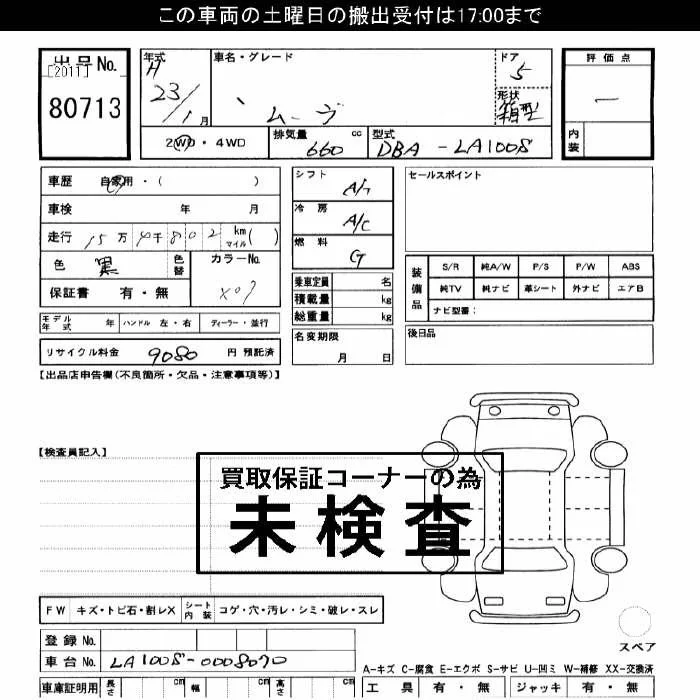 この車両の土曜日の搬出受付は17:00まで
出品No.
[2011]
80713
年式
H
23/1月
車名・グレード
ムーヴ
ドア
5
形状
箱型
評価点
ー
内装
2WD・4WD
排気量 cc
660
型式
DBA-LA100S
車歴 自家用・( )
車検 年 月
走行 15万 4千802 km マイル( )
色 黒 色替
カラーNo.
X07
保証書 有・無
シフト
A/T
冷房
A/C
燃料
G
乗車定員 名
積載量 kg
総重量 kg
セールスポイント
装備品
S/R 純A/W P/S P/W ABS
純TV 純ナビ 革シート 外ナビ エアB
ナビ型番:
モデル年式 年 ハンドル 左・右 ディーラー・並行
リサイクル料金 9080 円 預託済
名変期限
月 日
後日品
【出品店申告欄(不良箇所・欠品・注意事項等)】
【検査員記入】
買取保証コーナーの為
未検査
FW キズ・トビ石・割レX シート内装 コゲ・穴・汚レ・シミ・破レ・スレ
スペア
登録No.
車台No. LA100S-0008070
A-キズ C-腐食 E-エクボ S-サビ U-凹ミ W-補修 XX-交換済
車庫証明用 長さ cm 幅 cm 高さ cm
工具 有・無 ジャッキ 有・無